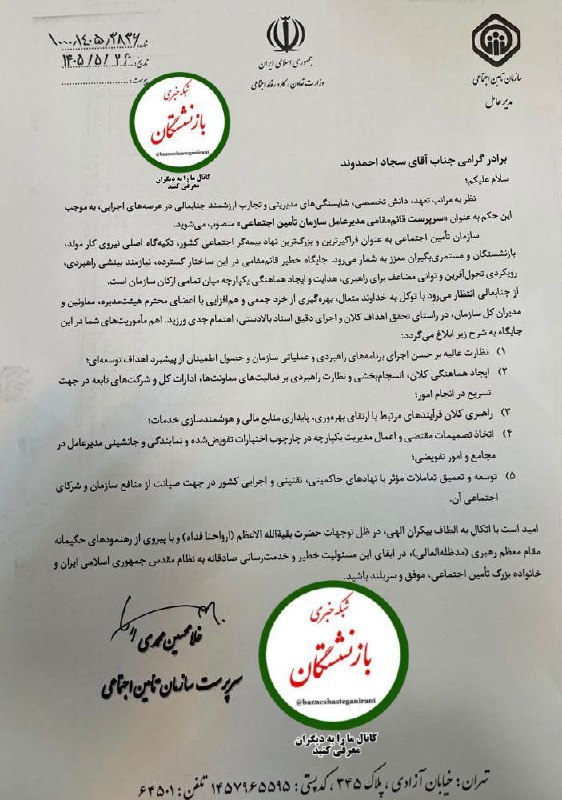 سازمان تأمین اجتماعی
مدیرعامل
جمهوری اسلامی ایران
وزارت تعاون، کار و رفاه اجتماعی
شماره: ۱۰۰۰/۱۴۰۵/۳۸۳۶
تاریخ:
پیوست:
شبکه خبری
بازنشستگان
@bazneshasteganirani
کانال ما را به دیگران
معرفی کنید
برادر گرامی جناب آقای سجاد احمدوند
سلام علیکم؛
نظر به مراتب تعهد، دانش تخصصی، شایستگی‌های مدیریتی و تجارب ارزشمند جنابعالی در عرصه‌های اجرایی، به موجب
این حکم به عنوان «سرپرست قائم‌مقامی مدیرعامل سازمان تأمین اجتماعی» منصوب می‌شوید.
سازمان تأمین اجتماعی به عنوان فراگیرترین و بزرگ‌ترین نهاد بیمه‌گر اجتماعی کشور، تکیه‌گاه اصلی نیروی کار مولد،
بازنشستگان و مستمری‌بگیران معزز به شمار می‌رود. جایگاه خطیر قائم‌مقامی در این ساختار گسترده، نیازمند بینشی راهبردی،
رویکردی تحول‌آفرین و توانی مضاعف برای راهبری، هدایت و ایجاد هماهنگی یکپارچه میان تمامی ارکان سازمان است.
از جنابعالی انتظار می‌رود با توکل به خداوند متعال، بهره‌گیری از خرد جمعی و هم‌افزایی با اعضای محترم هیئت‌مدیره، معاونین و
مدیران کل سازمان، در راستای تحقق اهداف کلان و اجرای دقیق اسناد بالادستی، اهتمام جدی ورزید. اهم مأموریت‌های شما در این
جایگاه به شرح زیر ابلاغ می‌گردد:
۱) نظارت عالیه بر حسن اجرای برنامه‌های راهبردی و عملیاتی سازمان و حصول اطمینان از پیشبرد اهداف توسعه‌ای؛
۲) ایجاد هماهنگی کلان، انسجام‌بخشی و نظارت راهبردی بر فعالیت‌های معاونت‌ها، ادارات کل و شرکت‌های تابعه در جهت
تسریع در انجام امور؛
۳) راهبری کلان فرآیندهای مرتبط با ارتقای بهره‌وری، پایداری منابع مالی و هوشمندسازی خدمات؛
۴) اتخاذ تصمیمات مقتضی و اعمال مدیریت یکپارچه در چارچوب اختیارات تفویض‌شده و نمایندگی و جانشینی مدیرعامل در
مجامع و امور تفویضی؛
۵) توسعه و تعمیق تعاملات مؤثر با نهادهای حاکمیتی، تقنینی و اجرایی کشور در جهت صیانت از منافع سازمان و شرکای
اجتماعی آن.
امید است با اتکال به الطاف بیکران الهی، در ظل توجهات حضرت بقیةالله الاعظم (ارواحنا فداه) و با پیروی از رهنمودهای حکیمانه
مقام معظم رهبری (مدظله‌العالی)، در ایفای این مسئولیت خطیر و خدمت‌رسانی صادقانه به نظام مقدس جمهوری اسلامی ایران و
خانواده بزرگ تأمین اجتماعی، موفق و سربلند باشید.
غلامحسین محمدی
سرپرست سازمان تامین اجتماعی
شبکه خبری
بازنشستگان
@bazneshasteganirani
کانال ما را به دیگران
معرفی کنید
تهران: خیابان آزادی، پلاک ۳۴۵، کدپستی: ۱۴۵۷۹۶۵۵۹۵ تلفن: ۶۴۵۰۱